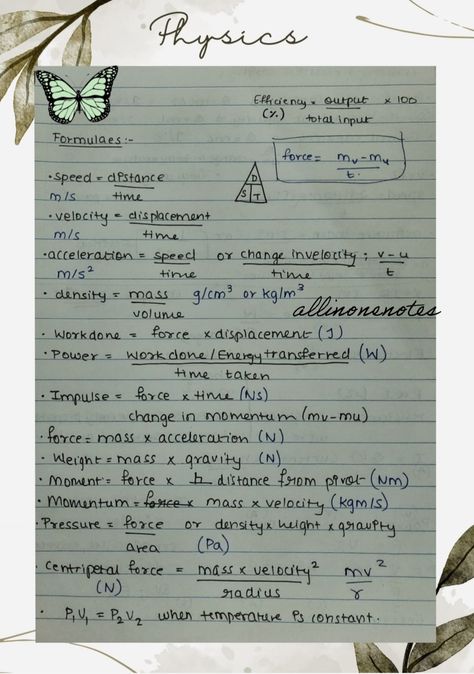 Physics
Efficiency = output × 100
(%) total input
Formulaes:-
force = mv - mu
t.
• speed = distance
m/s time
D
S T
• velocity = displacement
m/s time
• acceleration = speed or change in velocity ; v - u
m/s² time time t
• density = mass g/cm³ or kg/m³
volume
allinonenotes
• Workdone = force × displacement (J)
• Power = work done / Energy transferred (W)
time taken
• Impulse = force × time (Ns)
change in momentum (mv-mu)
• force = mass × acceleration (N)
• Weight = mass × gravity (N)
• Moment = force × h distance from pivot (Nm)
• Momentum = force × mass × velocity (kgm/s)
• Pressure = force or density × height × gravity
area (Pa)
• Centripetal force = mass × velocity² mv²
(N) radius r
• P₁V₁ = P₂V₂ when temperature is constant.